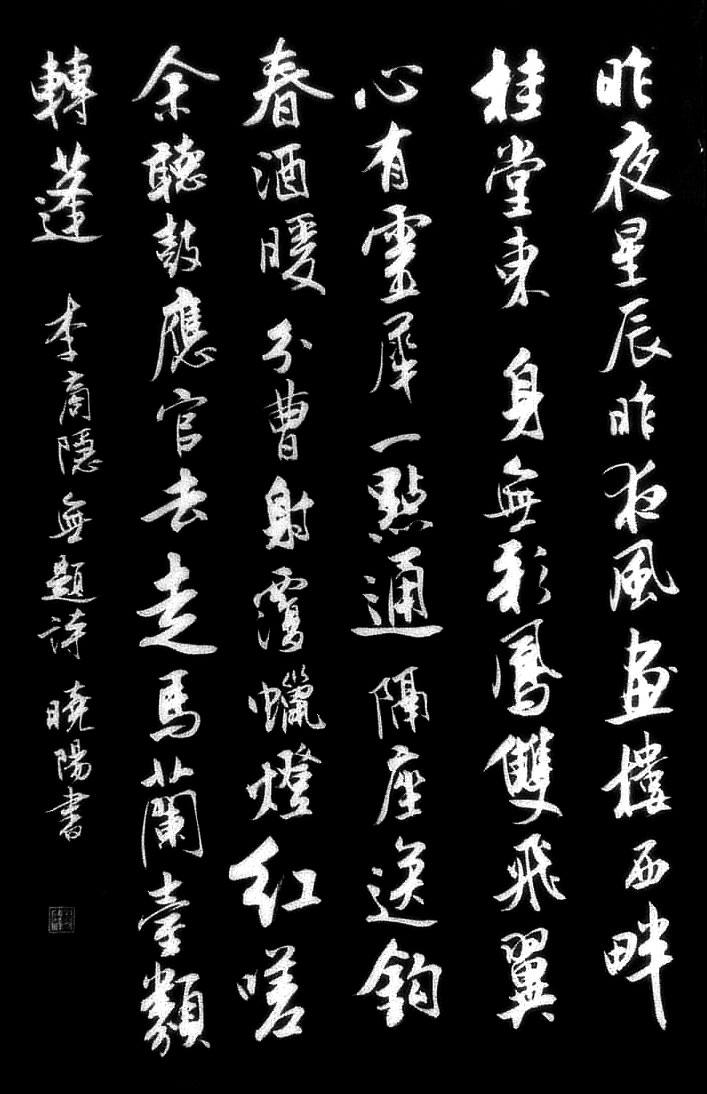 昨夜星辰昨夜風畫樓西畔
桂堂東身無彩鳳雙飛翼
心有靈犀一點通隔座送鉤
春酒暖分曹射覆蠟燈紅嗟
余聽鼓應官去走馬蘭臺類
轉蓬李商隱無題詩曉陽書